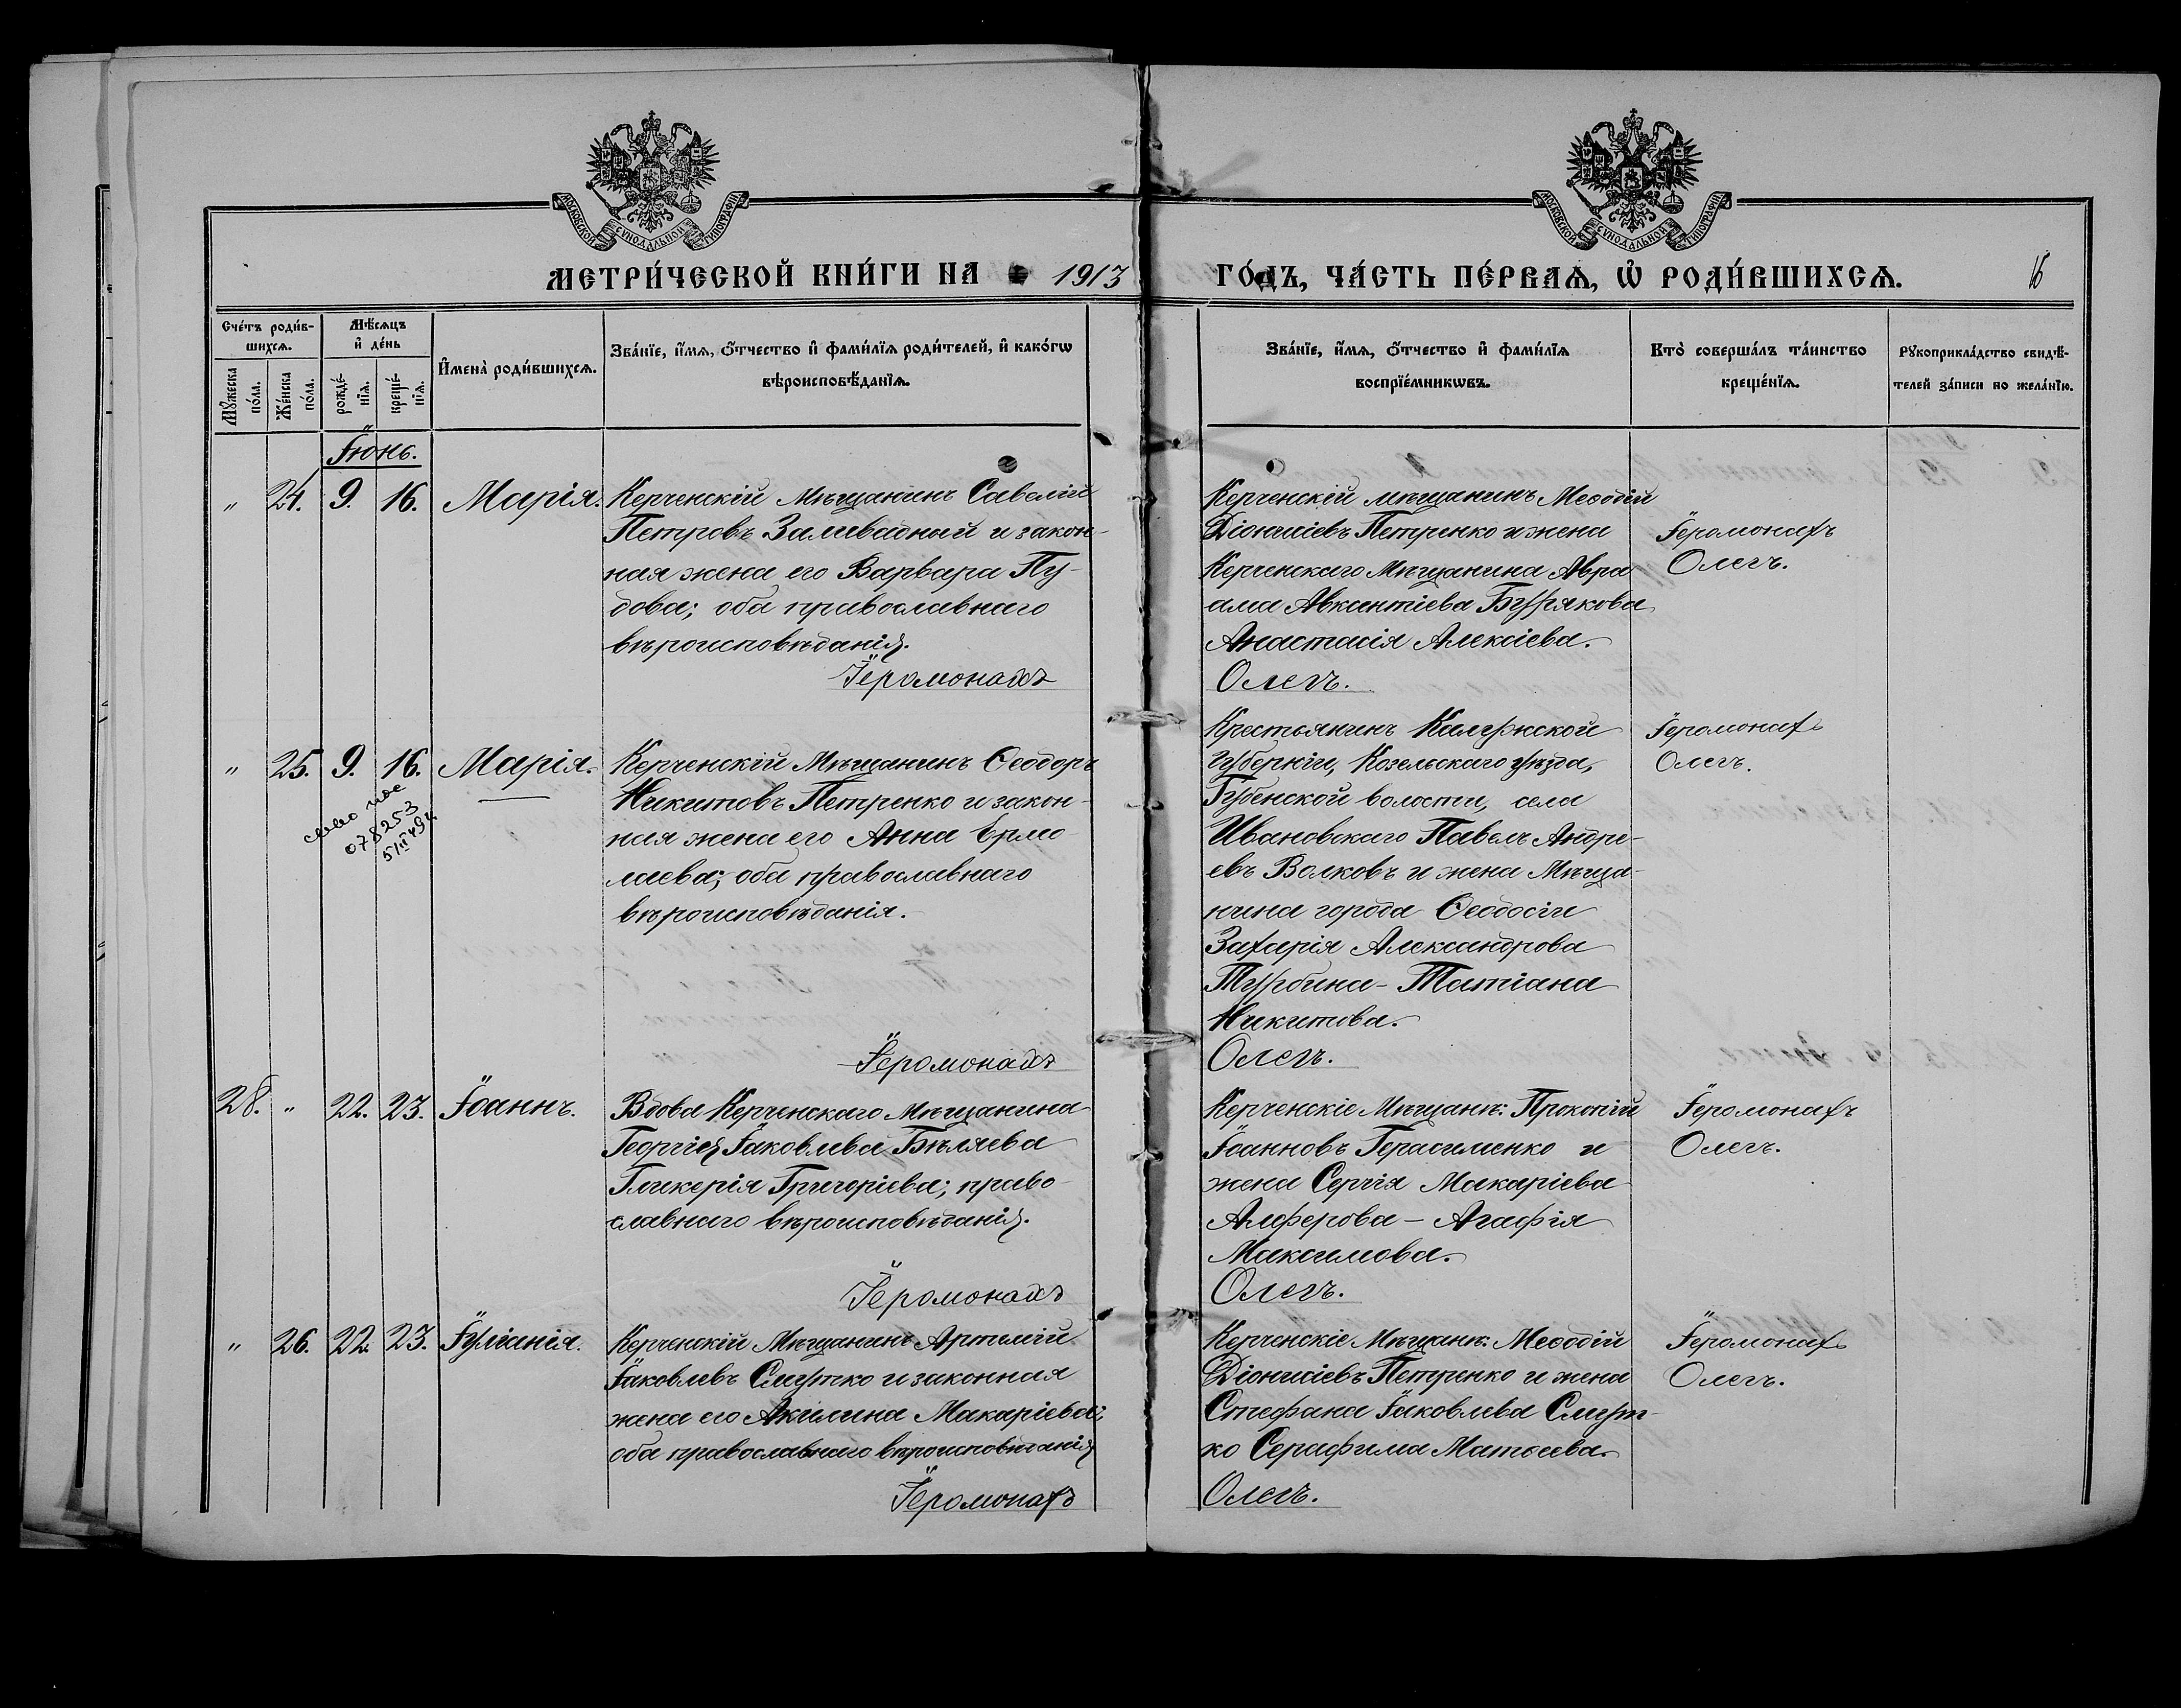 МОСКОВСКОЙ СѴНОДАЛЬНОЙ ТИПОГРАФІИ
МОСКОВСКОЙ СѴНОДАЛЬНОЙ ТИПОГРАФІИ
МЕТРИ́ЧЕСКОЙ КНИ́ГИ НА 1913
ГО́ДЪ, ЧА́СТЬ ПЕ́РВАѦ, Ѽ РОДИ́ВШИХСѦ.
Сче́тъ роди́в-
шихсѧ.
Мꙋ́жеска по́ла.
Же́нска по́ла.
Мѣ́сѧцъ
и҆ де́нь
рожде́-
нїѧ.
креще́-
нїѧ.
И҆мена̀ роди́вшихсѧ.
Зва́нїе, и҆́мѧ, ѻ҆́тчество и҆ фами́лїѧ роди́телей, и҆ како́гѡ
вѣроисповѣ́данїѧ.
Зва́нїе, и҆́мѧ, ѻ҆́тчество и҆ фами́лїѧ
воспрїе́мникѡвъ.
Кто̀ соверша́лъ та́инство
креще́нїѧ.
Рꙋкоприкла́дство свидѣ́-
телей за́писи по жела́нїю.
Іюнь.
" 24. 9. 16. Марія.
Керченскій Мѣщанинъ Савелій
Петровъ Заливадный и закон-
ная жена его Варвара Пу-
дова; оба православнаго
вѣроисповѣданія.
Іеромонахъ
Керченскій мѣщанинъ Меѳодій
Діонисіевъ Петренко и жена
Керченскаго Мѣщанина Авра
ама Авксентіева Бурякова
Анастасія Алексіева.
Олегъ.
Іеромонахъ
Олегъ.
" 25. 9. 16. Марія.
078253
Керченскій Мѣщанинъ Ѳеодоръ
Никитовъ Петренко и закон-
ная жена его Анна Ермо-
лаева; оба православнаго
вѣроисповѣданія.
Іеромонахъ
Крестьянинъ Калужской
Губерніи, Козельскаго уѣзда,
Губенской волости, села
Ивановскаго Павелъ Андре-
евъ Волковъ и жена Мѣща-
нина города Ѳеодосіи
Захарія Александрова
Турбина - Татіана
Никитова.
Олегъ.
Іеромонахъ
Олегъ.
28. " 22. 23. Іоаннъ.
Вдова Керченскаго Мѣщанина
Георгія Іаковлева Бѣляева
Гликерія Григоріева; право-
славнаго вѣроисповѣданія.
Іеромонахъ
Керченскіе Мѣщане: Прокопій
Іоанновъ Герасименко и
жена Сергія Макаріева
Алферова - Агафія
Максимова.
Олегъ.
Іеромонахъ
Олегъ.
" 26. 22. 23. Іуліанія.
Керченскій Мѣщанинъ Артемій
Іаковлевъ Смутко и законная
жена его Акилина Макаріева;
оба православнаго вѣроисповѣданія
Іеромонахъ
Керченскіе Мѣщане: Меѳодій
Діонисіевъ Петренко и жена
Стефана Іаковлева Смут-
ко Серафима Матѳеева.
Олегъ.
Іеромонахъ
Олегъ.